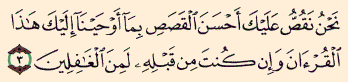 نَحْنُ نَقُصُّ عَلَيْكَ أَحْسَنَ ٱلْقَصَصِ بِمَآ أَوْحَيْنَآ إِلَيْكَ هَٰذَا
ٱلْقُرْءَانَ وَإِن كُنتَ مِن قَبْلِهِۦ لَمِنَ ٱلْغَٰفِلِينَ ٣